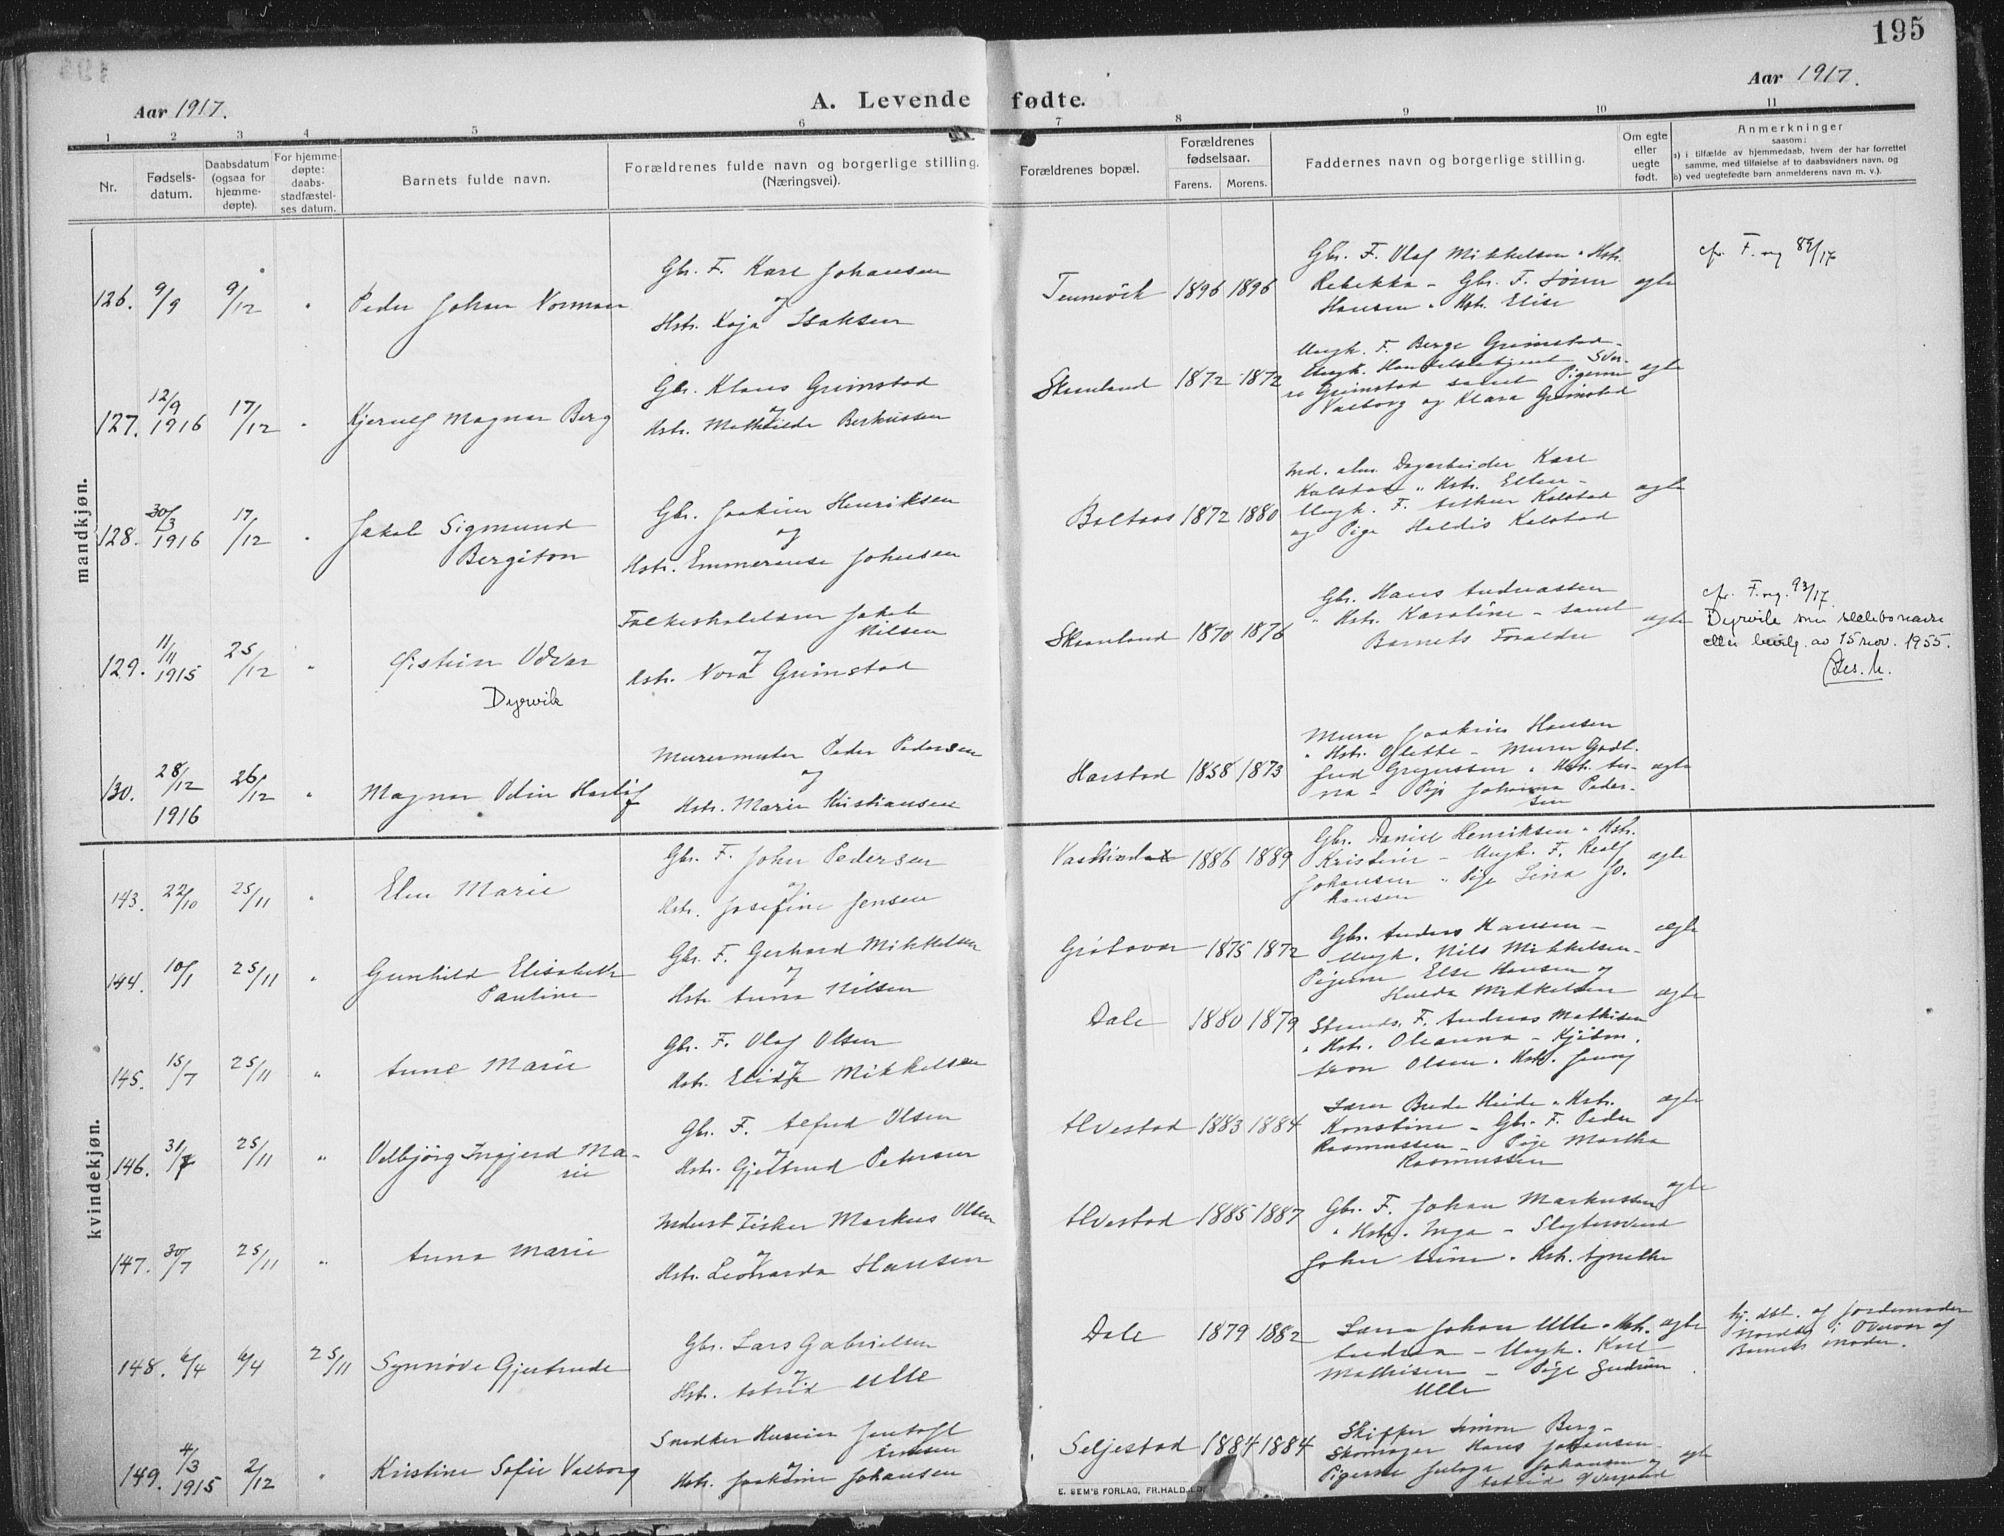 195
Aar 1917.
A. Levende fødte.
Aar 1917.
1 2 3 4 5 6 7 8 9 10 11
Nr.
Fødsels-
datum.
Daabsdatum
(ogsaa for
hjemme-
døpte).
For hjemme-
døpte:
daabs-
stadfæstel-
ses datum.
Barnets fulde navn.
Forældrenes fulde navn og borgerlige stilling.
(Næringsvei).
Forældrenes bopæl.
Forældrenes
fødselsaar.
Farens. Morens.
Faddernes navn og borgerlige stilling.
Om egte
eller
uegte
født.
Anmerkninger
saasom:
a) i tilfælde av hjemmedaab, hvem der har forrettet
samme, med tilføielse af to daabsvidners navn, og
b) ved uegtefødte barn anmelderens navn m. v.).
mandkjøn.
126. 9/9 9/12 " Peder Johan Norman
Gbr. F. Karl Johansen
og
Hstr. Kaja Isaksen
Tennevik 1896 1896
Gbr. F. Olaf Mikkelsen " Hstr.
Rebekka – Gbr. F. Sören
Hansen " Hstr. Elise
egte
cfr. F. og 89/17
127. 12/9 1916 17/12 " Kjerulf Magnar Berg
Gbr. Klaus Grimstad
og
Hstr. Mathilde Berthussen
Skaanland 1872 1872
Ungk. F. Berge Grimstad –
Ungk. Handelsbetjent Sver-
re Grimstad samt Pigerne
Valborg og Klara Grimstad
egte
128. 30/3 1916 17/12 " Jakob Sigmund
Bergiton
Gbr. Joakim Henriksen
og
Hstr. Emmeranse Johnsen
Boltaas 1872 1880
Ind. alm. Dagarbeider Karl
Kalstad " Hstr. Ellen –
Ungk. F. Arthur Kalstad
og Pige Haldis Kalstad
egte
129. 11/11 1915 25/12 " Øistein Odvar
Dyrvik
Nilsen
og
Hstr. Nora Grimstad
Skaanland 1870 1876
Gbr. Hans Andreassen
" Hstr. Karoline – samt
Barnets Foraldre
egte
cfr. F. og. 93/17.
Dyrvik som slektsnavn
etter bevilg. av 15 nov. 1955.
130. 28/12 1916 26/12 " Magnar Odin Harlöf
Murermester Peder Pedersen
og
Hstr. Marie Kristiansen
Harstad 1858 1873
Murer Joakim Hansen
" Hstr. Olette – Murer Godt-
fred Gregussen " Hstr. Ar-
na – Pige Johanna Peder-
sen
egte
kvindekjøn.
143. 22/10 25/11 " Elen Marie
Gbr. F. John Pedersen
og
Hstr. Josefine Jensen
1886 1889
Gbr. Daniel Henriksen " Hstr.
Kristine – Ungk. F. Realf
Johansen " Pige Lina Jo-
hansen
egte
144. 10/1 25/11 " Gunhild Elisabeth
Pauline
Gbr. F. Gerhard Mikkelsen
og
Hstr Anna Nilsen
Grötavar 1875 1872
Gbr. Anders Hansen –
Ungk. Nils Mikkelsen –
Pigerne Else Hansen og
Hulda Mikkelsen
egte
145. 15/7 25/11 " Anne Marie
Gbr. F. Olaf Olsen
og
Hstr. Elida Mikkelsen
Dale 1880 1879
Strands. F. Andreas Mathisen
" Hstr. Oleanna – Kjöbm.
Aron Olsen " Hstr. Jenny
egte
146. 31/7 25/11 " Valbjörg Ingjerd Ma-
rie
Gbr. F. Alfred Olsen
og
Hstr. Gjertrud Petersen
Alvestad 1883 1884
Lærer Brede Heide " Hstr.
Konstine – Gbr. F. Peder
Rasmussen – Pige Martha
Rasmussen
egte
147. 30/7 25/11 " Anna Marie
Indust Fisker Markus Olsen
og
Hstr. Leonarda Hansen
Alvestad 1885 1887
Gbr. F. Johan Markussen
" Hstr. Inga – Slagtersvend
John Aune " Hstr. Agnethe
egte
148. 6/4 6/4 25/11 Synnöve Gjertrude
Gbr. Lars Gabrielsen
og
Hstr. Astrid Ulle
Dale 1879 1882
Johan Ulle " Hstr.
Andrea – Ungk. Karl
Mathisen – Pige Gudrun
Ulle
egte
hj. dbt. af Jordemoder
Nordby i Overvær af
Barnets Moder.
149. 4/3 1915 2/12 " Kristine Sofie Valborg
Snedker Jentoft
Hstr. Joakime Johansen
Seljestad 1884 1884
Skipper Simon Berg –
Skomager Hans Johansen –
Pigerne Johansen og
Astrid
egte
E. SEM'S FORLAG, FR.HALD.